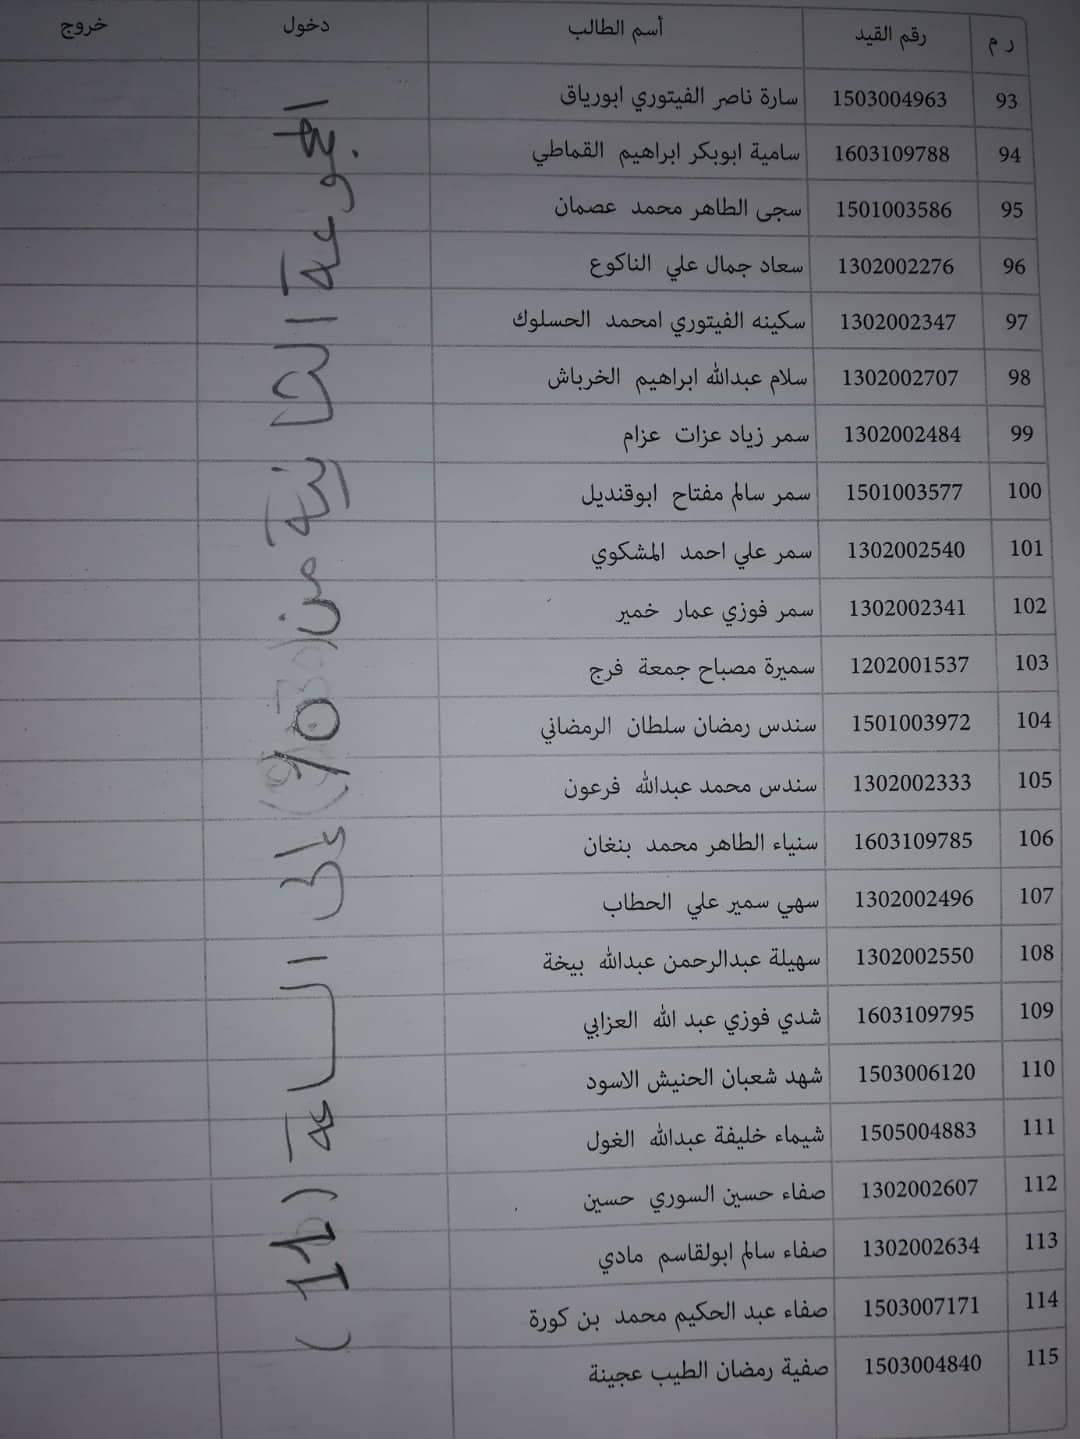 ر م رقم القيد أسم الطالب دخول خروج
93 1503004963 سارة ناصر الفيتوري ابورياق
94 1603109788 سامية ابوبكر ابراهيم القماطي
95 1501003586 سجى الطاهر محمد عصمان
96 1302002276 سعاد جمال علي الناكوع
97 1302002347 سكينه الفيتوري امحمد الحسلوك
98 1302002707 سلام عبدالله ابراهيم الخرباش
99 1302002484 سمر زياد عزات عزام
100 1501003577 سمر سالم مفتاح ابوقنديل
101 1302002540 سمر علي احمد المشكوي
102 1302002341 سمر فوزي عمار خمير
103 1202001537 سميرة مصباح جمعة فرج
104 1501003972 سندس رمضان سلطان الرمضاني
105 1302002333 سندس محمد عبدالله فرعون
106 1603109785 سنياء الطاهر محمد بنغان
107 1302002496 سهي سمير علي الحطاب
108 1302002550 سهيلة عبدالرحمن عبدالله بيخة
109 1603109795 شدي فوزي عبد الله العزابي
110 1503006120 شهد شعبان الحنيش الاسود
111 1505004883 شيماء خليفة عبدالله الغول
112 1302002607 صفاء حسين السوري حسين
113 1302002634 صفاء سالم ابولقاسم مادي
114 1503007171 صفاء عبد الحكيم محمد بن كورة
115 1503004840 صفية رمضان الطيب عجينة
المجموعة الثانية من إلى الساعة (11)